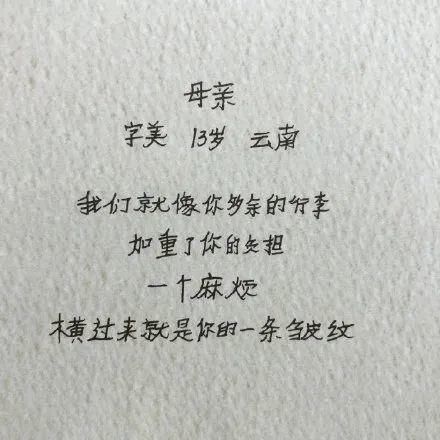 母亲
字美 13岁 云南
我们就像你多余的行李
加重了你的负担
一个麻烦
横过来就是你的一条皱纹